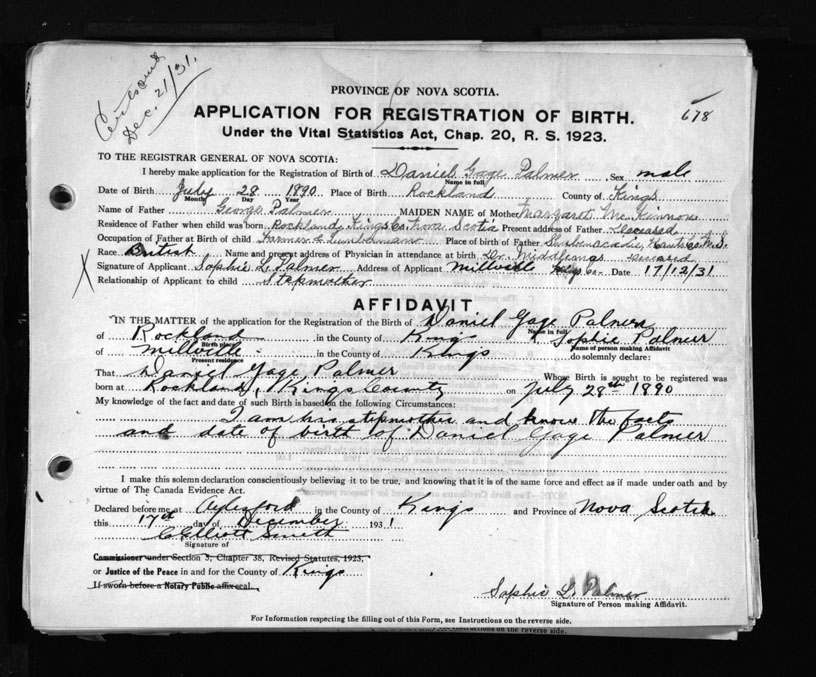 Dec. 21/31.
PROVINCE OF NOVA SCOTIA.
APPLICATION FOR REGISTRATION OF BIRTH.
678
Under the Vital Statistics Act, Chap. 20, R. S. 1923.
TO THE REGISTRAR GENERAL OF NOVA SCOTIA:
I hereby make application for the Registration of Birth of Daniel Gage Palmer, Sex male
Name in full
Date of Birth July 28 1890 Place of Birth Rockland County of Kings
Month Day Year
Name of Father George Palmer MAIDEN NAME of Mother Margaret McKinnon
Residence of Father when child was born Rockland, Kings Co. Nova Scotia Present address of Father Deceased
Occupation of Father at Birth of child Farmer & Lumberman Place of birth of Father Shubenacadie, Hants Co. N.S.
Race British Name and present address of Physician in attendance at birth Dr. Middlemas deceased
Signature of Applicant Sophie L. Palmer Address of Applicant Millville Kings Co. Date 17/12/31
Relationship of Applicant to child Stepmother
X
AFFIDAVIT
IN THE MATTER of the application for the Registration of the Birth of Daniel Gage Palmer
Name in full
of Rockland in the County of Kings I Sophie Palmer
Birth place Name of person making Affidavit
of Millville in the County of Kings do solemnly declare:
Present residence
That Daniel Gage Palmer Whose Birth is sought to be registered was
born at Rockland, Kings County on July 28th 1890
My knowledge of the fact and date of such Birth is based on the following Circumstances:
I am his stepmother and know the facts
and date of birth of Daniel Gage Palmer
I make this solemn declaration conscientiously believing it to be true, and knowing that it is of the same force and effect as if made under oath and by
virtue of The Canada Evidence Act.
Declared before me at Aylesford in the County of Kings and Province of Nova Scotia
this 17th day of December 1931
C Elliott Smith
Signature of
Commissioner under Section 3, Chapter 38, Revised Statutes, 1923,
or Justice of the Peace in and for the County of Kings
If sworn before a Notary Public affix seal.
Sophie L. Palmer
Signature of Person making Affidavit.
For Information respecting the filling out of this Form, see Instructions on the reverse side.